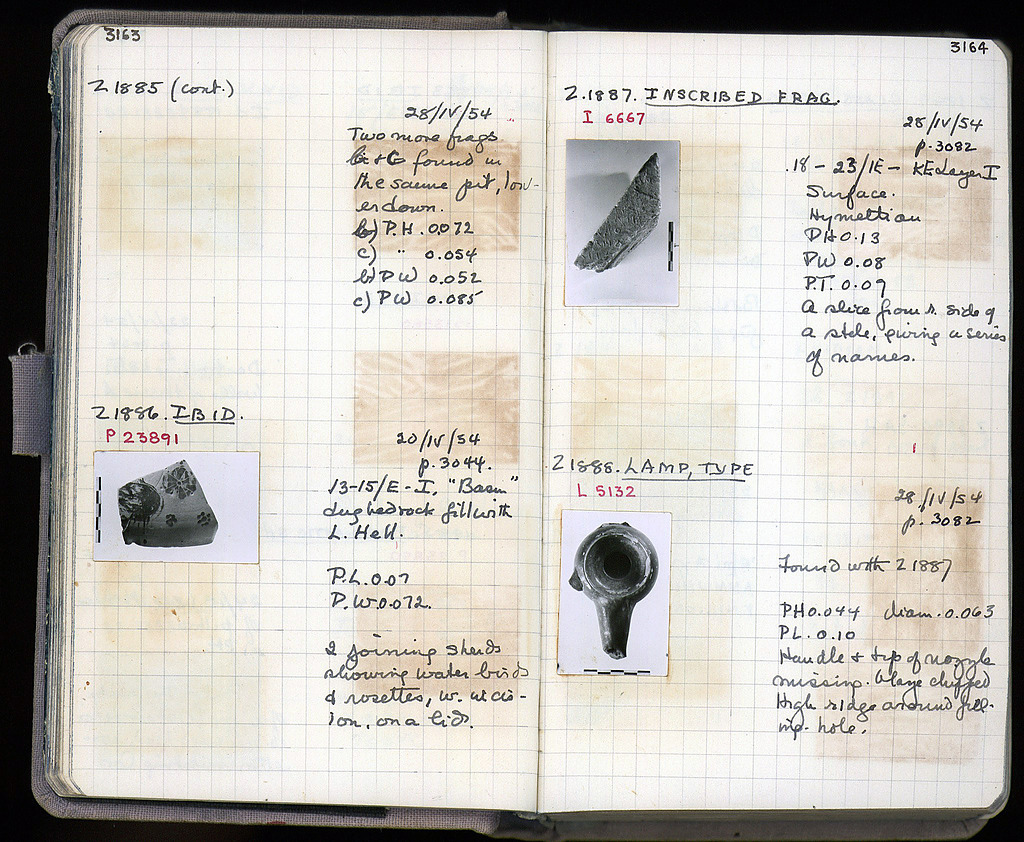 3163
Z 1885 (cont.)
28/IV/54
Two more frags
b + c found in
the same pit, low-
er down.
b) P.H. 0.072
c) " 0.054
b) PW 0.052
c) PW 0.085
Z 1886. IBID.
P 23891
20/IV/54
p. 3044.
13-15/E-I, "Basin"
dug bedrock fill with
L. Hell.
P.L. 0.07
P.W. 0.072.
2 joining sherds
showing water birds
& rosettes, w. incis-
ion, on a lid.
3164
Z.1887. INSCRIBED FRAG.
I 6667
28/IV/54
p. 3082
18-23/IE- KE Layer I
Surface.
Hymettian
PH 0.13
PW 0.08
P.T. 0.09
A slice from r. side of
a stele, giving a series
of names.
Z 1888. LAMP, TYPE
L 5132
28/IV/54
p. 3082
Found with Z 1887
PH 0.044 diam. 0.063
PL. 0.10
Handle & tip of nozzle
missing. Glaze chipped
High ridge around fill-
ing-hole.